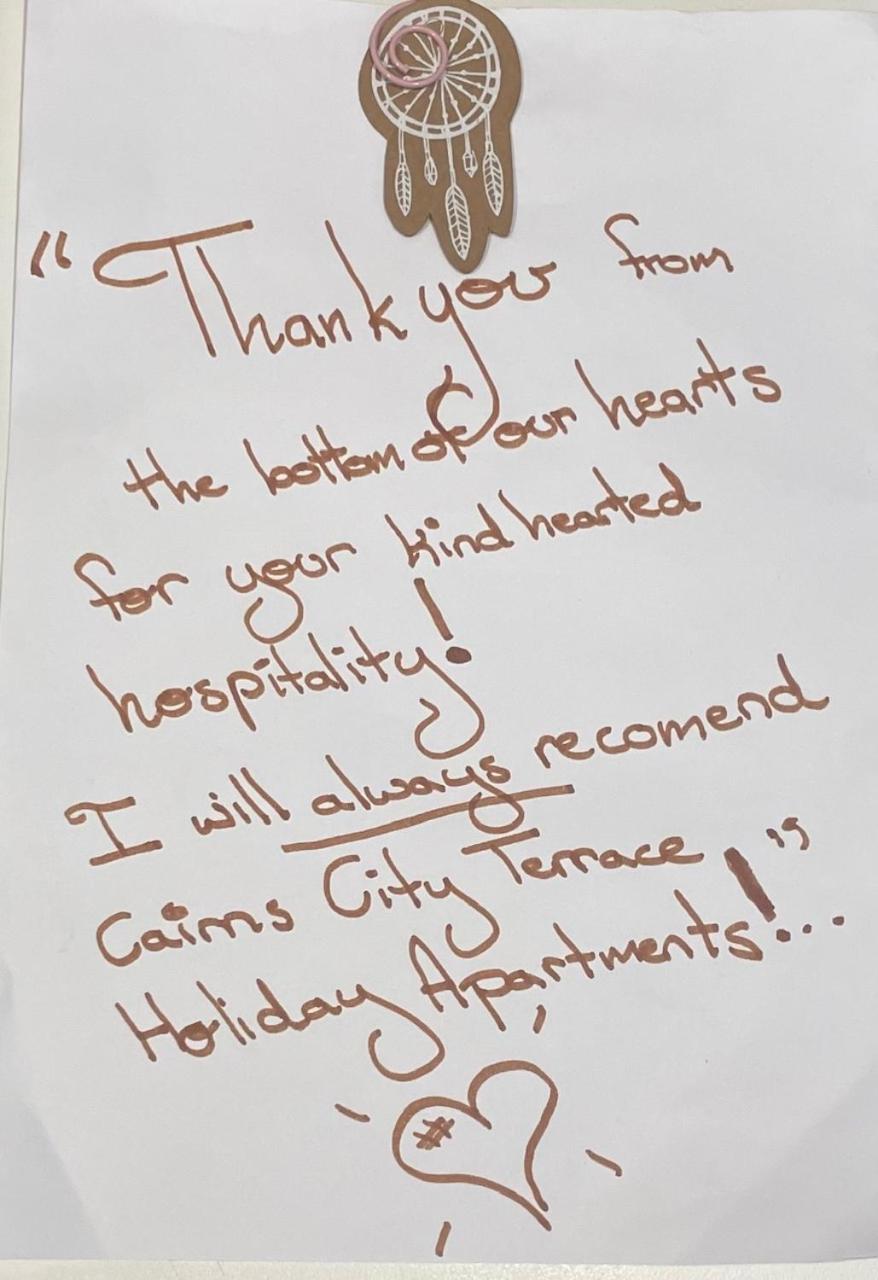 “Thank you from
the bottom of our hearts
for your kind hearted
hospitality!
I will always recomend
Cairns City Terrace
Holiday Apartments!”...
#